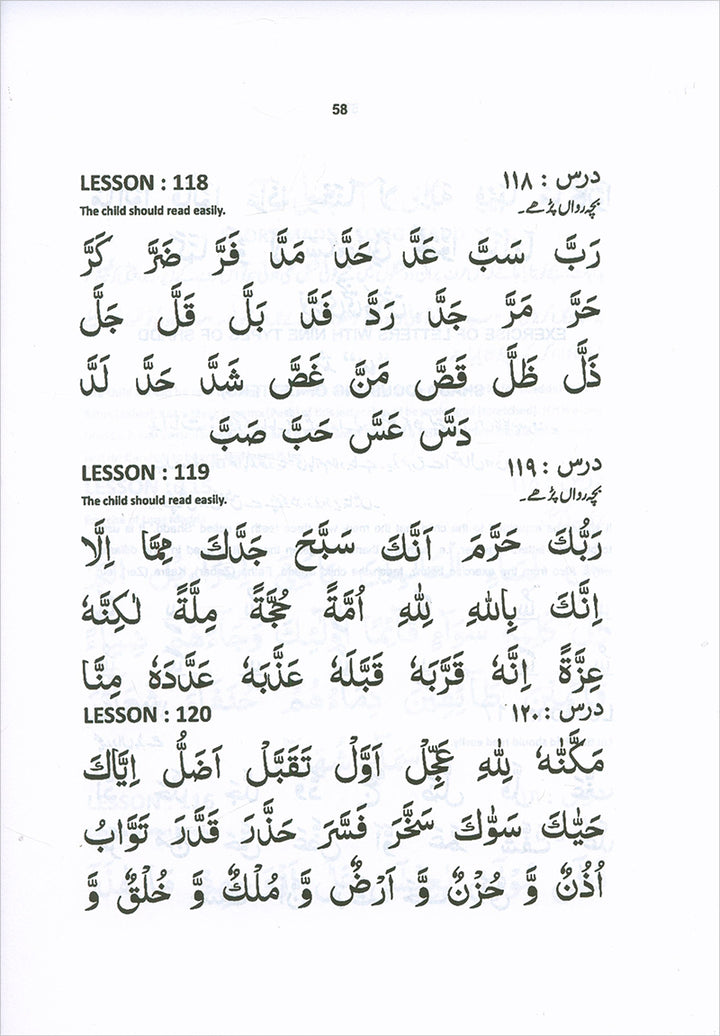 58
LESSON : 118 درس : ۱۱۸
The child should read easily. بچہ رواں پڑھے۔
رَبَّ سَبَّ عَدَّ حَدَّ مَدَّ فَرَّ ضَرَّ كَرَّ
حَرَّ مَرَّ جَدَّ رَدَّ فَدَّ بَلَّ قَلَّ جَلَّ
ذَلَّ ظَلَّ قَصَّ مَنَّ غَصَّ شَدَّ حَدَّ لَدَّ
دَسَّ عَسَّ حَبَّ صَبَّ
LESSON : 119 درس : ۱۱۹
The child should read easily. بچہ رواں پڑھے۔
رَبُّكَ حَرَّمَ اَنَّكَ سَبَّحَ جَدَّكَ مِمَّا اِلَّا
اِنَّكَ بِاللهِ لِلّٰهِ اُمَّةً حُجَّةً مِلَّةً لٰكِنَّهٗ
عِزَّةً اِنَّهٗ قَرَّبَهٗ قَبَّلَهٗ عَذَّبَهٗ عَدَّدَهٗ مِنَّا
LESSON : 120 درس : ۱۲۰
مَكَّنّٰهُ لِلّٰهِ عَجِّلْ اَوَّلْ تَقَبَّلْ اَضَلُّ اِيَّاكَ
حَيّٰكَ سَوّٰكَ سَخَّرَ فَسَّرَ حَذَّرَ قَدَّرَ تَوَّابُ
اُذُنٌ وَّ حُزْنٌ وَّ اَرْضٌ وَّ مُلْكٌ وَّ خُلْقٌ وَّ